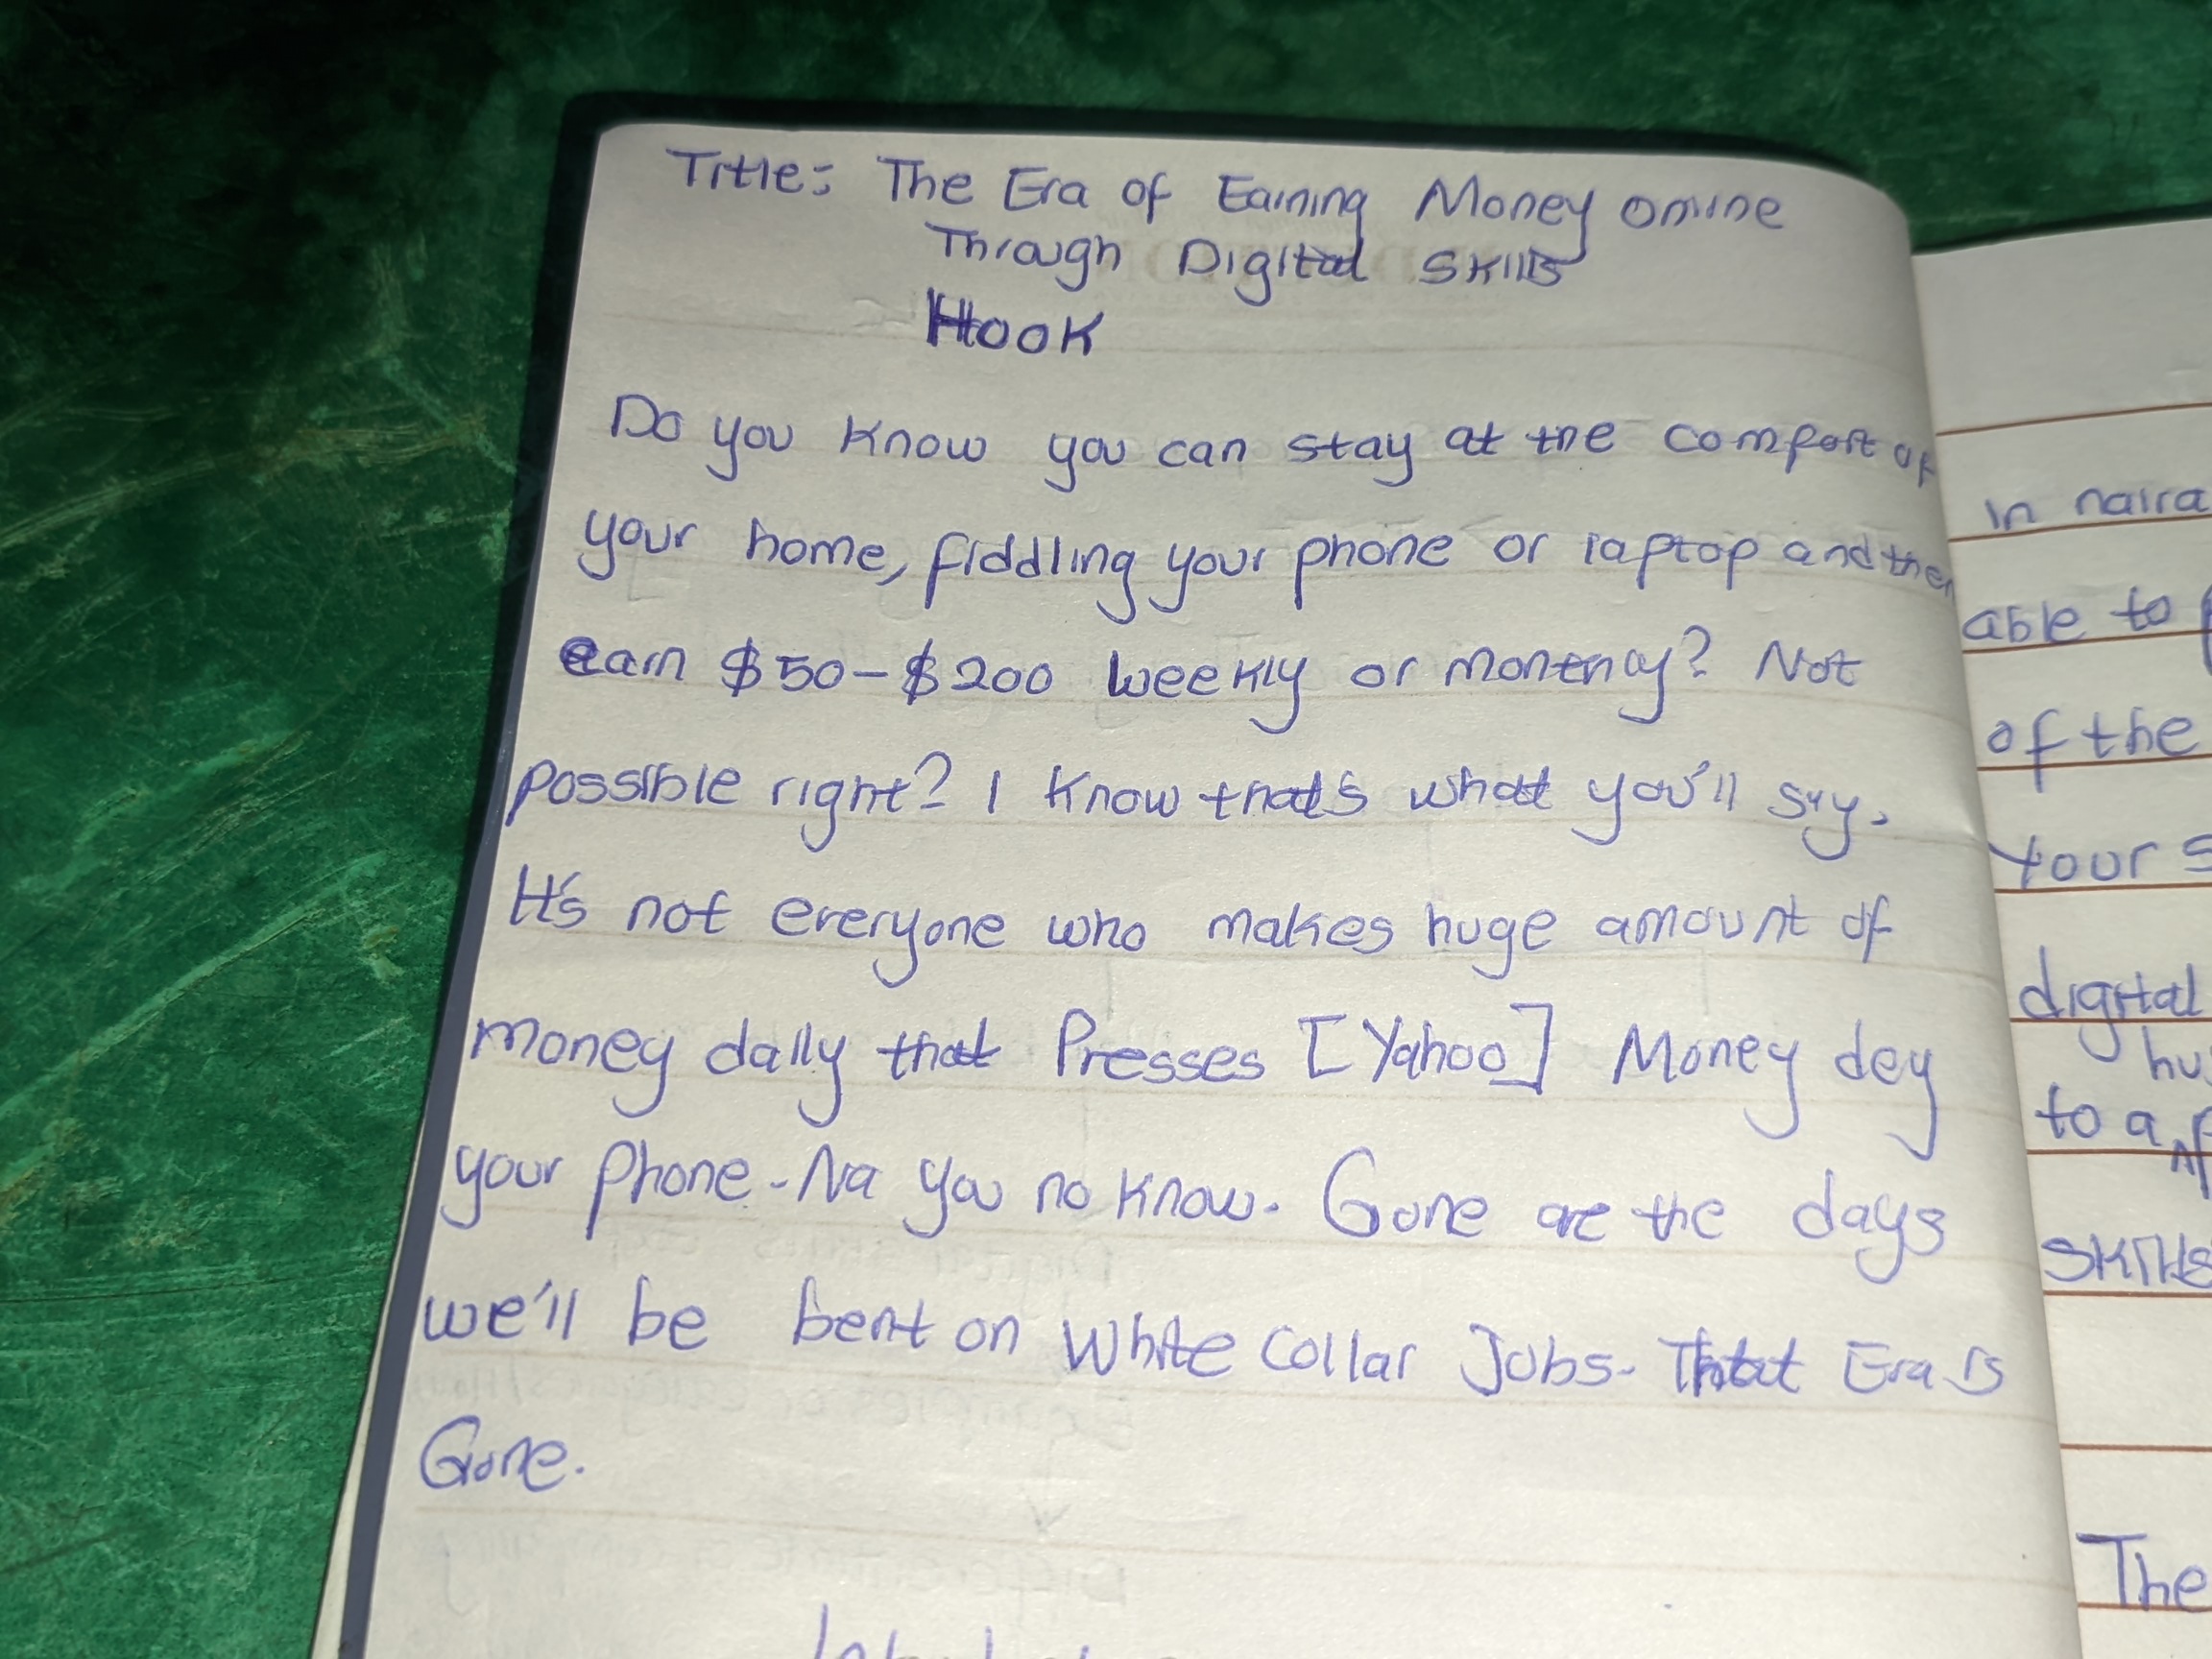 Title: The Era of Earning Money online
Through Digital Skills
Hook
Do you know you can stay at the comfort of
your home, fiddling your phone or laptop and then
earn $50-$200 weekly or monthly? Not
possible right? I know that's what you'll say.
It's not everyone who makes huge amount of
money daily that Presses [Yahoo] Money dey
your phone - Na you no know. Gone are the days
we'll be bent on White Collar Jobs. That Era is
Gone.
in naira
able to
of the
your
digital
to a
skills
The